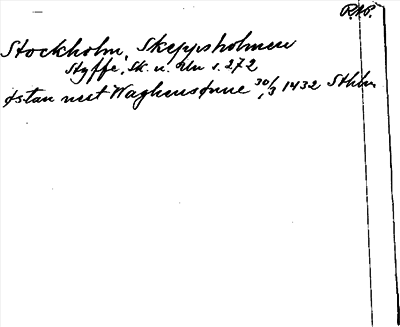 R.A.P.
Stockholm, Skeppsholmen
Styffe, Sk. u. Un s. 272
østan vert Waghensønne 30/3 1432 Sthlm